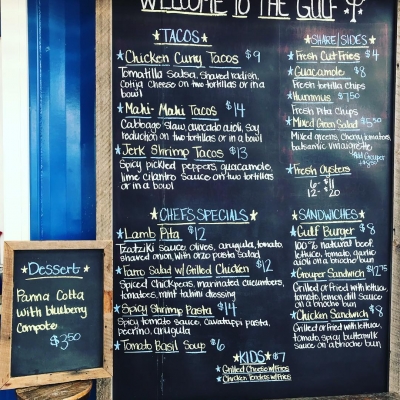 WELCOME TO THE GULF
TACOS
Chicken Curry Tacos $9
Tomatillo Salsa, Shaved radish,
Cotija Cheese on two tortillas or in a
bowl
Mahi-Mahi Tacos $14
Cabbage Slaw, avocado aioli, soy
reduction on two tortillas or in a bowl
Jerk Shrimp Tacos $13
Spicy pickled peppers, guacamole
lime cilantro sauce on two tortillas
or in a bowl
CHEFS SPECIALS
Lamb Pita $12
Tzatziki sauce, olives, arugula, tomato,
shaved onion, with orzo pasta salad
Farro Salad w/Grilled Chicken $12
Spiced Chickpeas, marinated cucumbers,
tomatoes, mint tahini dressing
Spicy Shrimp Pasta $14
Spicy tomato sauce, cavatappi pasta,
pecorino, arugula
Tomato Basil Soup $6
SHARE/SIDES
Fresh Cut Fries $4
Guacamole $8
Fresh tortilla Chips
Hummus $7.50
Fresh Pita Chips
Mixed Green Salad $5.50
Mixed greens, cherry tomatoes,
balsamic vinaigrette
Add Grouper
Fresh Oysters
6- $11
12- $20
SANDWICHES
Gulf Burger $8
100% natural beef,
lettuce, tomato, garlic
aioli on a brioche bun
Grouper Sandwich $12.75
Grilled or Fried with lettuce,
tomato, lemon, dill Sauce
on a brioche bun
Chicken Sandwich $8
Grilled or Fried with lettuce,
tomato, spicy buttermilk
sauce on a brioche bun
KIDS $7
Grilled Cheese w/Fries
Chicken Tenders w/Fries
Dessert
Panna Cotta
with blueberry
compote
$3.50